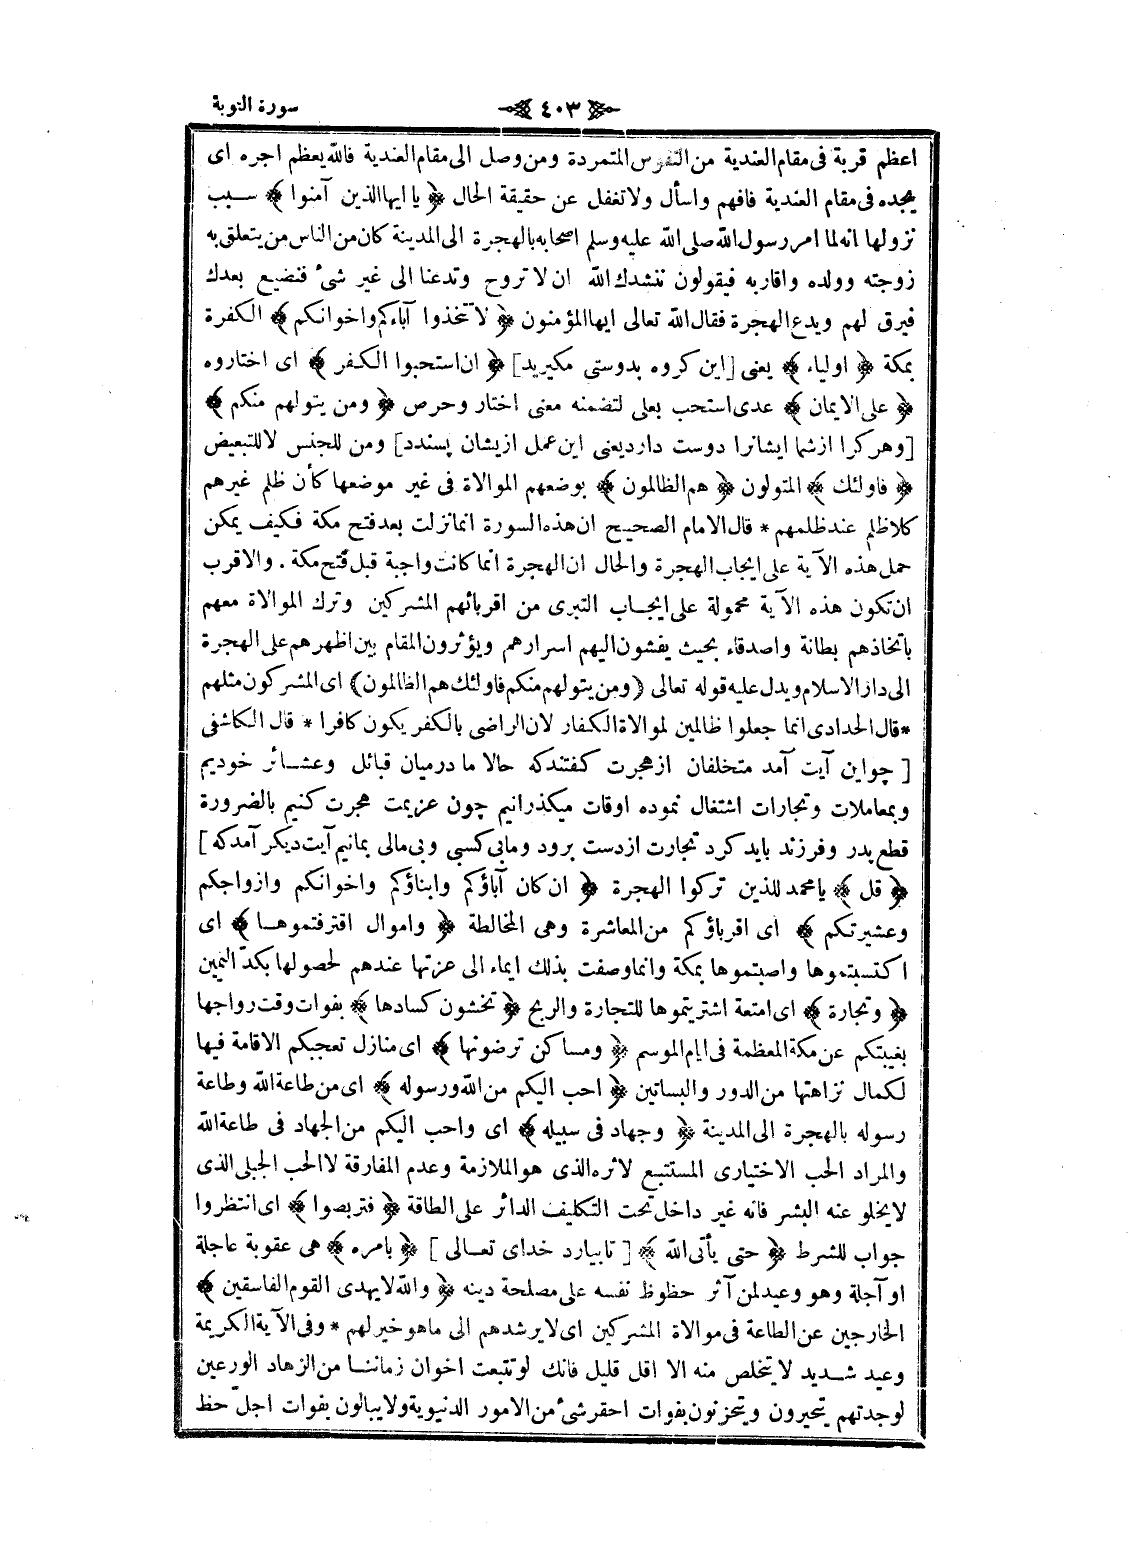 سورة التوبة ﴿ ٤٠٣ ﴾
اعظم قربة فى مقام العندية من النفوس المتمردة ومن وصل الى مقام العندية فالله يعظم اجره اى
يجده فى مقام العندية فافهم واسأل ولا تغفل عن حقيقة الحال ﴿ يا ايها الذين آمنوا ﴾ سبب
نزولها انه لما امر رسول الله صلى الله عليه وسلم اصحابه بالهجرة الى المدينة كان من الناس من يتعلق به
زوجته وولده واقاربه فيقولون ننشدك الله ان لا تروح وتدعنا الى غير شئ فنضيع بعدك
فيرق لهم ويدع الهجرة فقال الله تعالى ايها المؤمنون ﴿ لا تتخذوا آباءكم واخوانكم ﴾ الكفرة
بمكة ﴿ اولياء ﴾ يعنى [ اين كروه بدوستى مكيريد ] ﴿ ان استحبوا الكفر ﴾ اى اختاروه
﴿ على الايمان ﴾ عدى استحب بعلى لتضمنه معنى اختار وحرص ﴿ ومن يتولهم منكم ﴾
[ وهركرا ازشما ايشانرا دوست دارد يعنى اين عمل ازيشان پسندد ] ومن للجنس لا للتبعيض
﴿ فاولئك ﴾ المتولون ﴿ هم الظالمون ﴾ بوضعهم الموالاة فى غير موضعها كأن ظلم غيرهم
كلا ظلم عند ظلمهم * قال الامام الصحيح ان هذه السورة انما نزلت بعد فتح مكة فكيف يمكن
حمل هذه الآية على ايجاب الهجرة والحال ان الهجرة انما كانت واجبة قبل فتح مكة . والاقرب
ان تكون هذه الآية محمولة على ايجاب التبرى من اقربائهم المشركين وترك الموالاة معهم
باتخاذهم بطانة واصدقاء بحيث يفشون اليهم اسرارهم ويؤثرون المقام بين اظهرهم على الهجرة
الى دار الاسلام ويدل عليه قوله تعالى ( ومن يتولهم منكم فاولئك هم الظالمون ) اى المشركون مثلهم
* قال الحدادى انما جعلوا ظالمين لموالاة الكفار لان الراضى بالكفر يكون كافرا * قال الكاشفى
[ چواين آيت آمد متخلفان ازهجرت كفتندكه حالا ما درميان قبائل وعشائر خوديم
وبمعاملات وتجارات اشتغال نموده اوقات ميكذرانيم چون عزيمت هجرت كنيم بالضرورة
قطع پدر وفرزند بايد كرد تجارت ازدست برود ومابى كسبى وبى مالى بمانيم آيت ديكر آمدكه ]
﴿ قل ﴾ يا محمد للذين تركوا الهجرة ﴿ ان كان آباؤكم وابناؤكم واخوانكم وازواجكم
وعشيرتكم ﴾ اى اقرباؤكم من المعاشرة وهى المخالطة ﴿ واموال اقترفتموها ﴾ اى
اكتسبتموها واصبتموها بمكة وانما وصفت بذلك ايماء الى عزتها عندهم لحصولها بكدّ اليمين
﴿ وتجارة ﴾ اى امتعة اشتريتموها للتجارة والربح ﴿ تخشون كسادها ﴾ بفوات وقت رواجها
بغيبتكم عن مكة المعظمة فى ايام الموسم ﴿ ومساكن ترضونها ﴾ اى منازل تعجبكم الاقامة فيها
لكمال نزاهتها من الدور والبساتين ﴿ احب اليكم من الله ورسوله ﴾ اى من طاعة الله وطاعة
رسوله بالهجرة الى المدينة ﴿ وجهاد فى سبيله ﴾ اى واحب اليكم من الجهاد فى طاعة الله
والمراد الحب الاختيارى المستتبع لاثره الذى هو الملازمة وعدم المفارقة لا الحب الجبلى الذى
لا يخلو عنه البشر فانه غير داخل تحت التكليف الدائر على الطاقة ﴿ فتربصوا ﴾ اى انتظروا
جواب للشرط ﴿ حتى يأتى الله ﴾ [ تابيارد خداى تعالى ] ﴿ بامره ﴾ هى عقوبة عاجلة
او آجلة وهو وعيد لمن آثر حظوظ نفسه على مصلحة دينه ﴿ والله لا يهدى القوم الفاسقين ﴾
الخارجين عن الطاعة فى موالاة المشركين اى لا يرشدهم الى ما هو خير لهم * وفى الآية الكريمة
وعيد شديد لا يتخلص منه الا اقل قليل فانك لو تتبعت اخوان زماننا من الزهاد الورعين
لوجدتهم يتحيرون ويتحزنون بفوات احقر شئ من الامور الدنيوية ولا يبالون بفوات اجلّ حظ